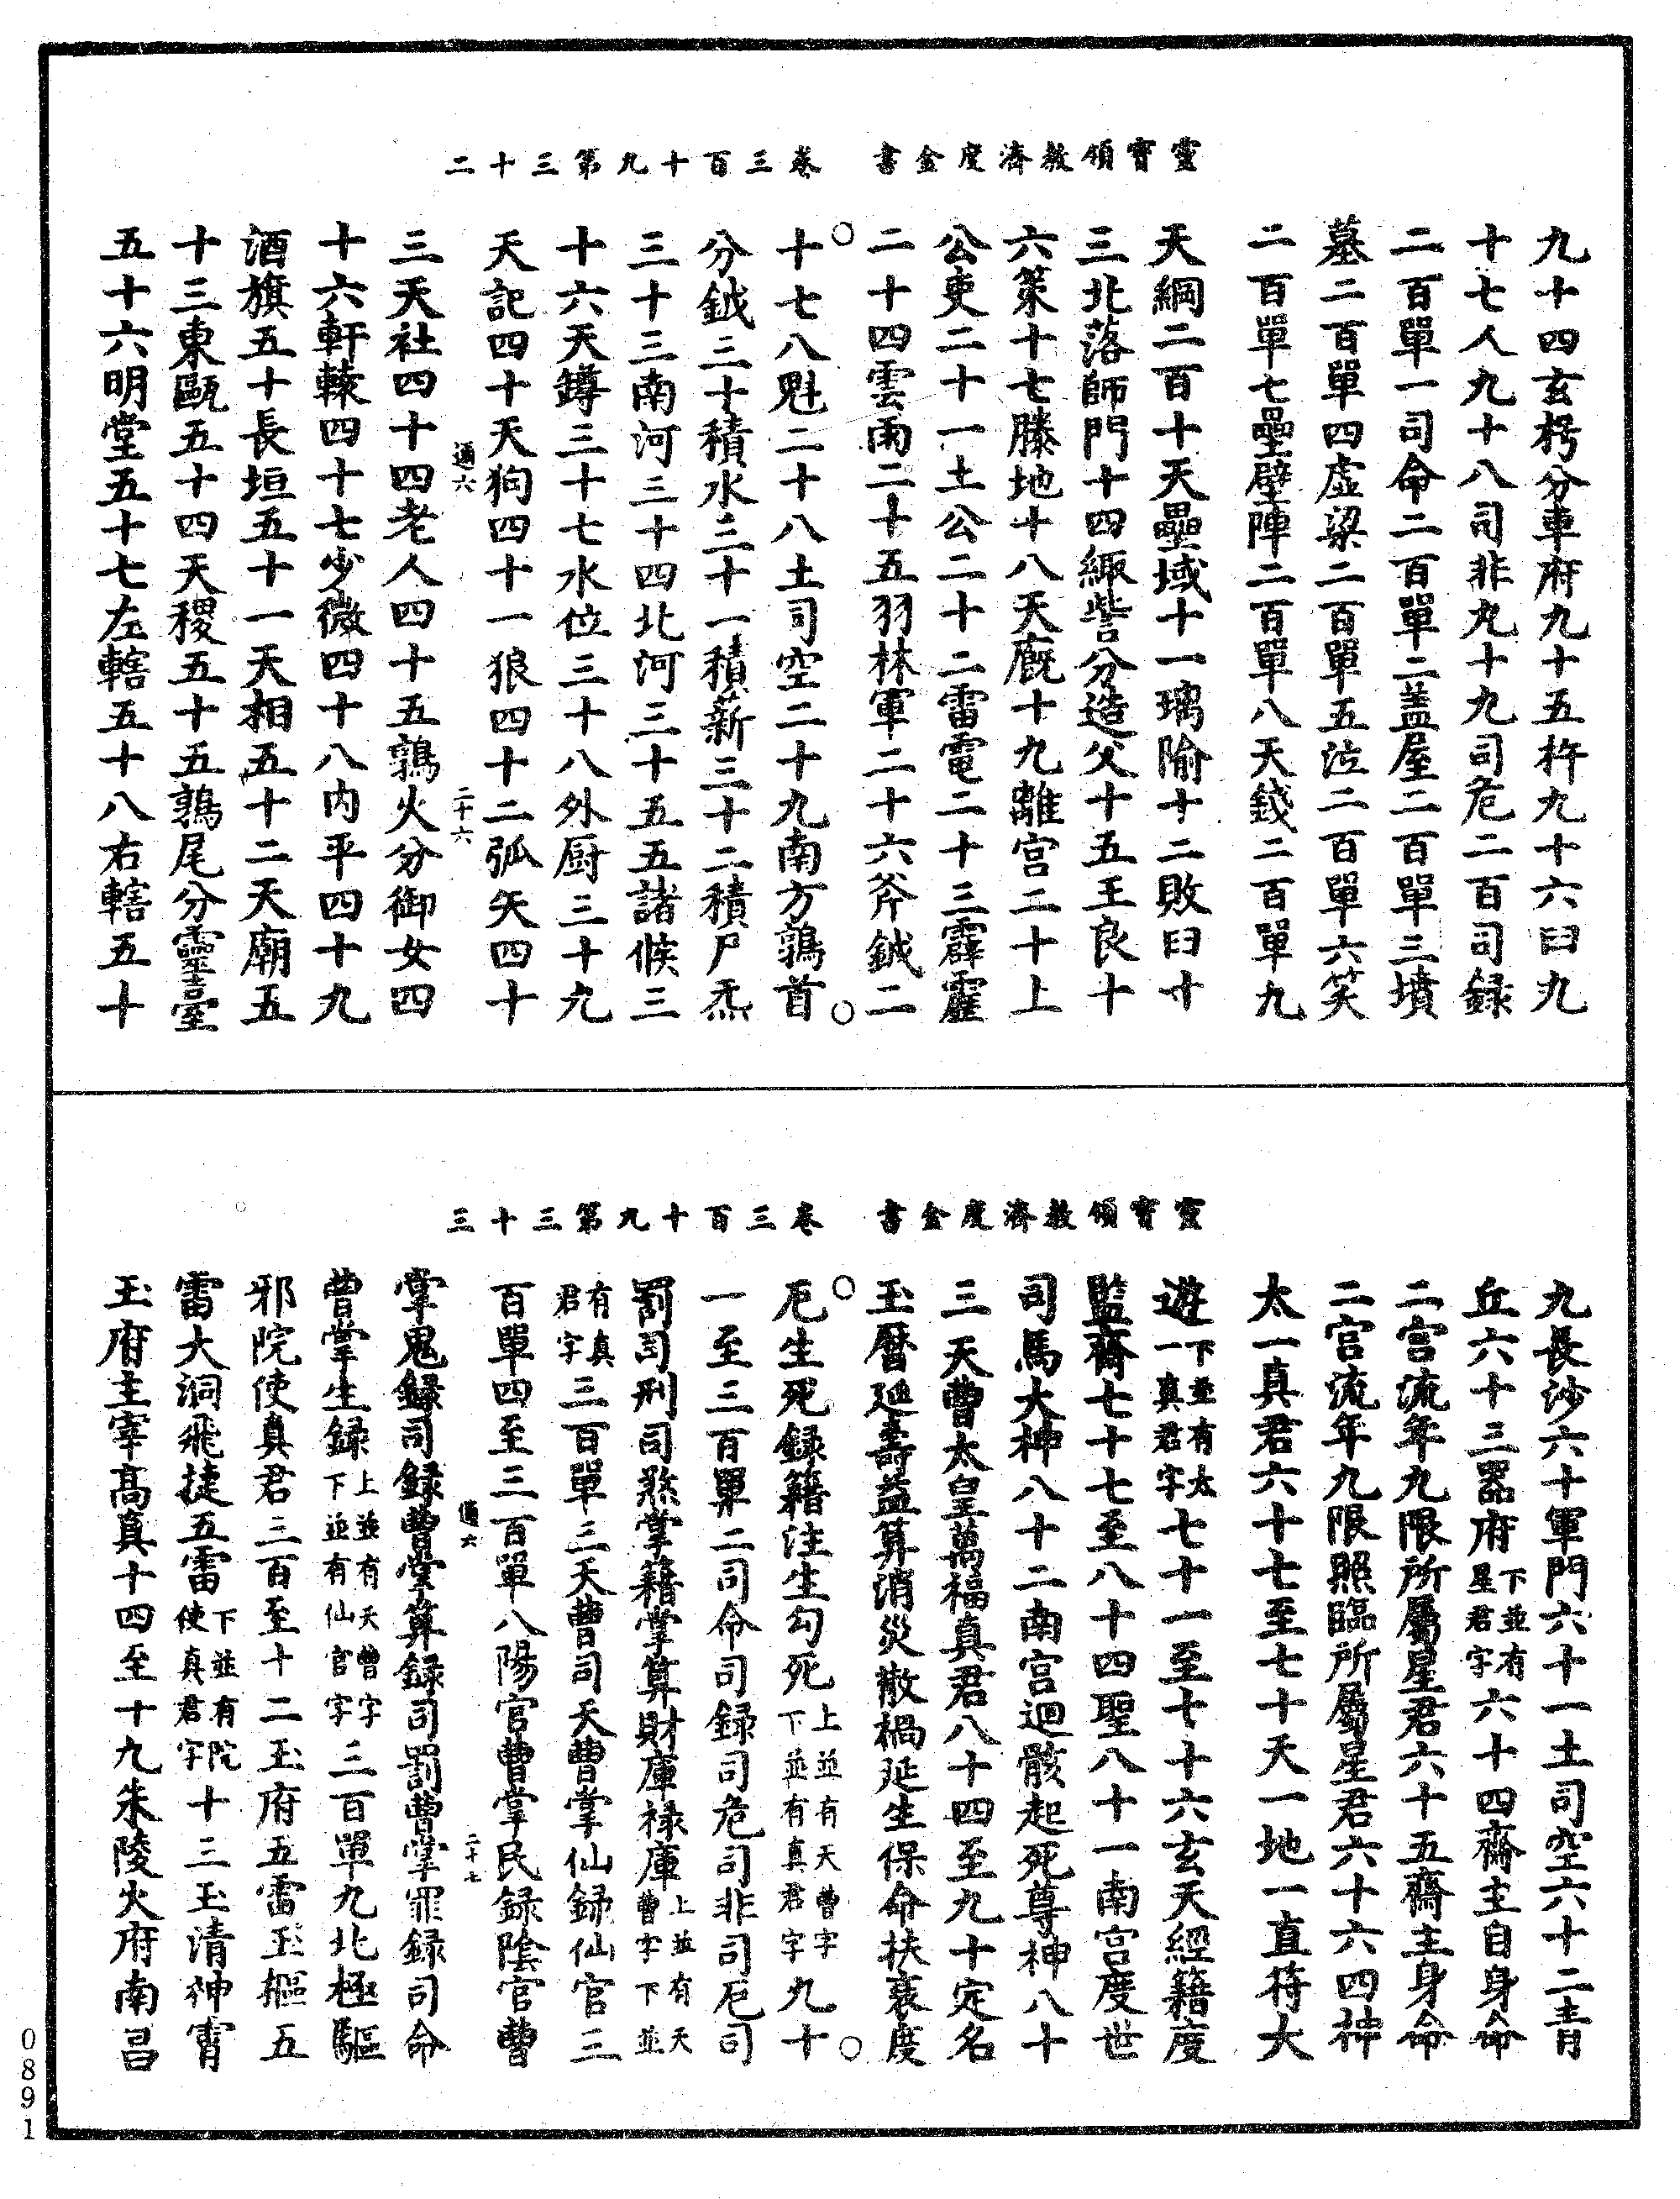 靈寶領教濟度金書　卷三百十九第三十二
九十四玄枵分車府九十五杵九十六臼九
十七人九十八司非九十九司危二百司録
二百單一司命二百單二蓋屋二百單三墳
墓二百單四虛梁二百單五泣二百單六哭
二百單七壘壁陣二百單八天錢二百單九
天綱二百十天壘域十一璃瑜十二敗臼十
三北落師門十四娵訾分造父十五王良十
六策十七螣地十八天廐十九離宮二十上
公吏二十一土公二十二雷電二十三霹靂
二十四雲雨二十五羽林軍二十六斧鉞二
十七八魁二十八土司空二十九南方鶉首
分鉞三十積水三十一積薪三十二積尸炁
三十三南河三十四北河三十五五諸候三
十六天鐏三十七水位三十八外厨三十九
天記四十天狗四十一狼四十二弧矢四十
通六　二十六
三天社四十四老人四十五鶉火分御女四
十六軒轅四十七少微四十八内平四十九
酒旗五十長垣五十一天相五十二天廟五
十三東甌五十四天稷五十五鶉尾分靈臺
五十六明堂五十七左轄五十八右轄五十
靈寶領教濟度金書　卷三百十九第三十三
九長沙六十軍門六十一土司空六十二青
丘六十三器府下並有星君字六十四齋主自身命
二宮流年九限所屬星君六十五齋主身命
二宮流年九限照臨所屬星君六十六四神
太一真君六十七至七十天一地一直符大
遊下並有太一真君字七十一至七十六玄天經籍度
監齋七十七至八十四聖八十一南宮度世
司馬大神八十二南宮迴骸起死尊神八十
三天曹太皇萬福真君八十四至九十定名
玉曆延壽益算消災散禍延生保命扶衰度
厄生死録籍注生勾死上並有天曹字下並有真君字九十
一至三百單二司命司録司危司非司厄司
罰司刑司煞掌籍掌算財庫禄庫上並有天曹字下並
有真君字三百單三天曹司天曹掌仙録仙官三
百單四至三百單八陽官曹掌民録陰官曹
通六　二十七
掌鬼録司録曹掌算録司罰曹掌罪録司命
曹掌生録上並有天曹字下並有仙官字三百單九北極驅
邪院使真君三百至十二玉府五雷玉樞五
雷大洞飛捷五雷下並有院使真君字十三玉清神霄
玉府主宰高真十四至十九朱陵火府南昌
0891